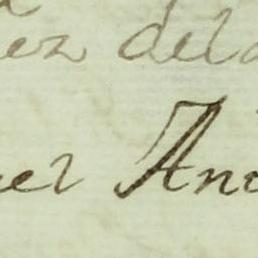 ez del
el An